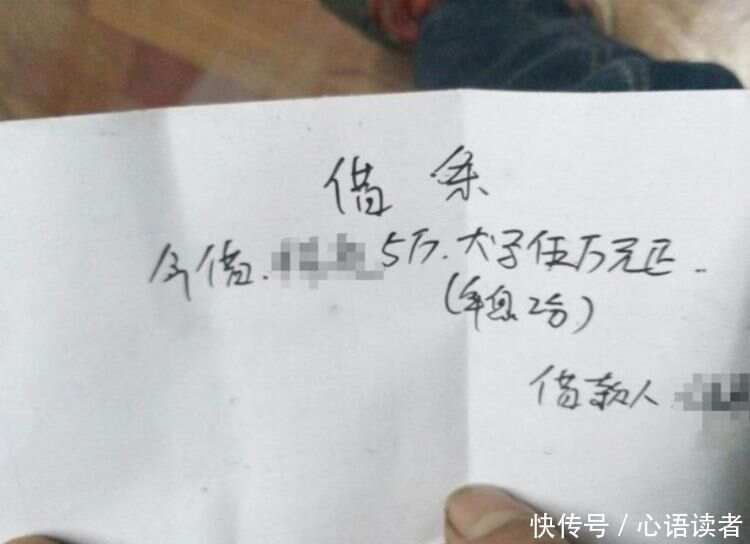 借条
今借. 5万. 大字伍万元正.
(年息2分)
借款人
快传号/心语读者